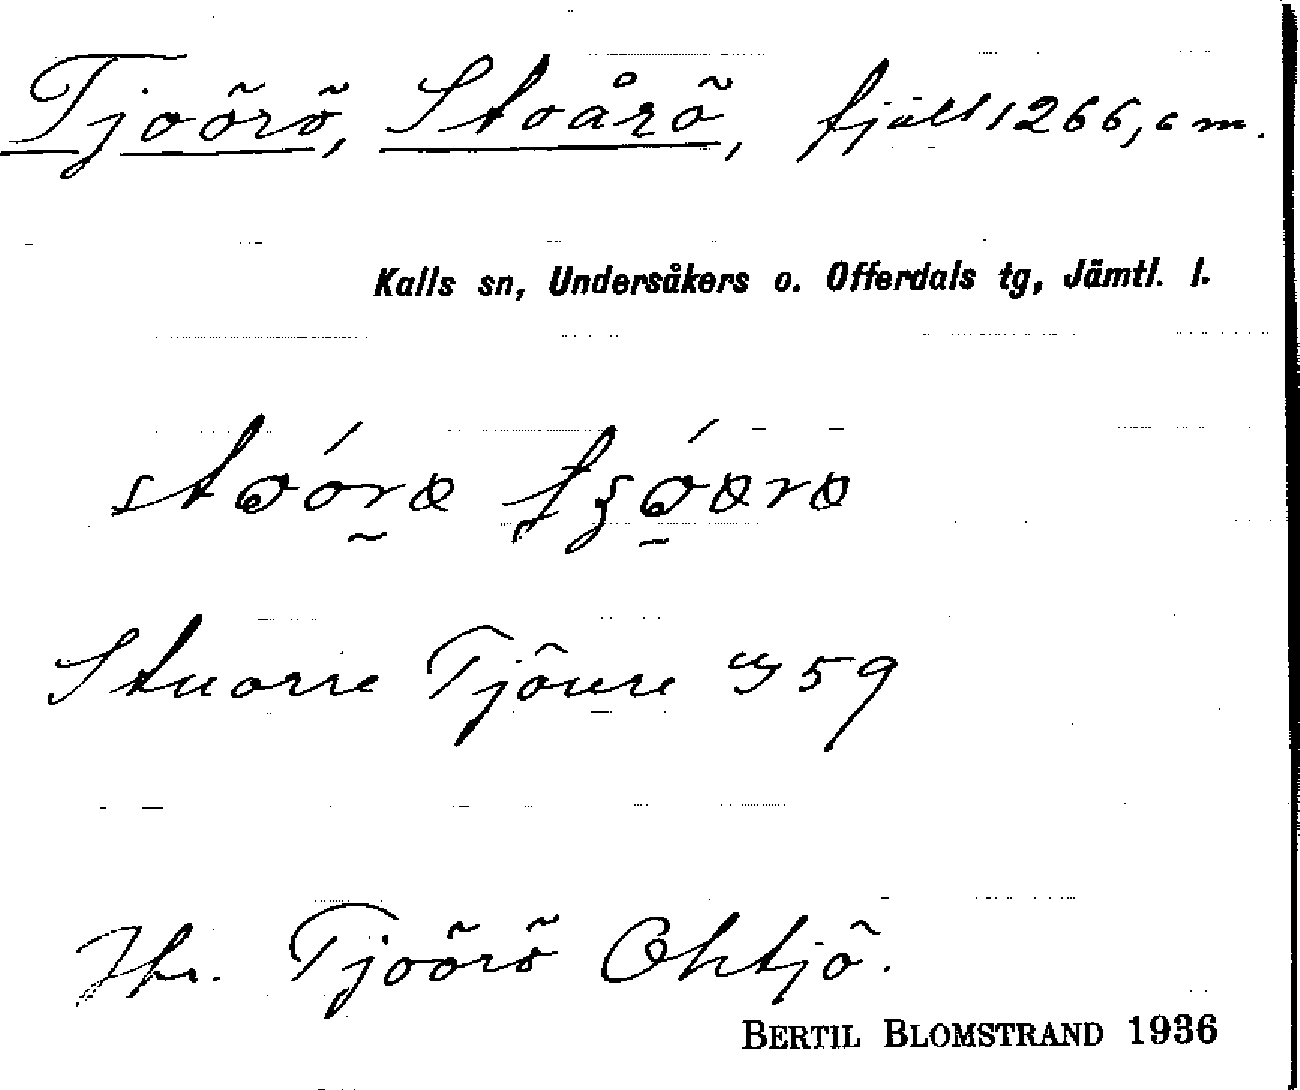 Tjoõrõ, Stoårõ, fjäll 1266,6 m.
Kalls sn, Undersåkers o. Offerdals tg, Jämtl. l.
Stuorre Tjõure 59
Jfr. Tjoõrõ Ohtjõ.
BERTIL BLOMSTRAND 1936